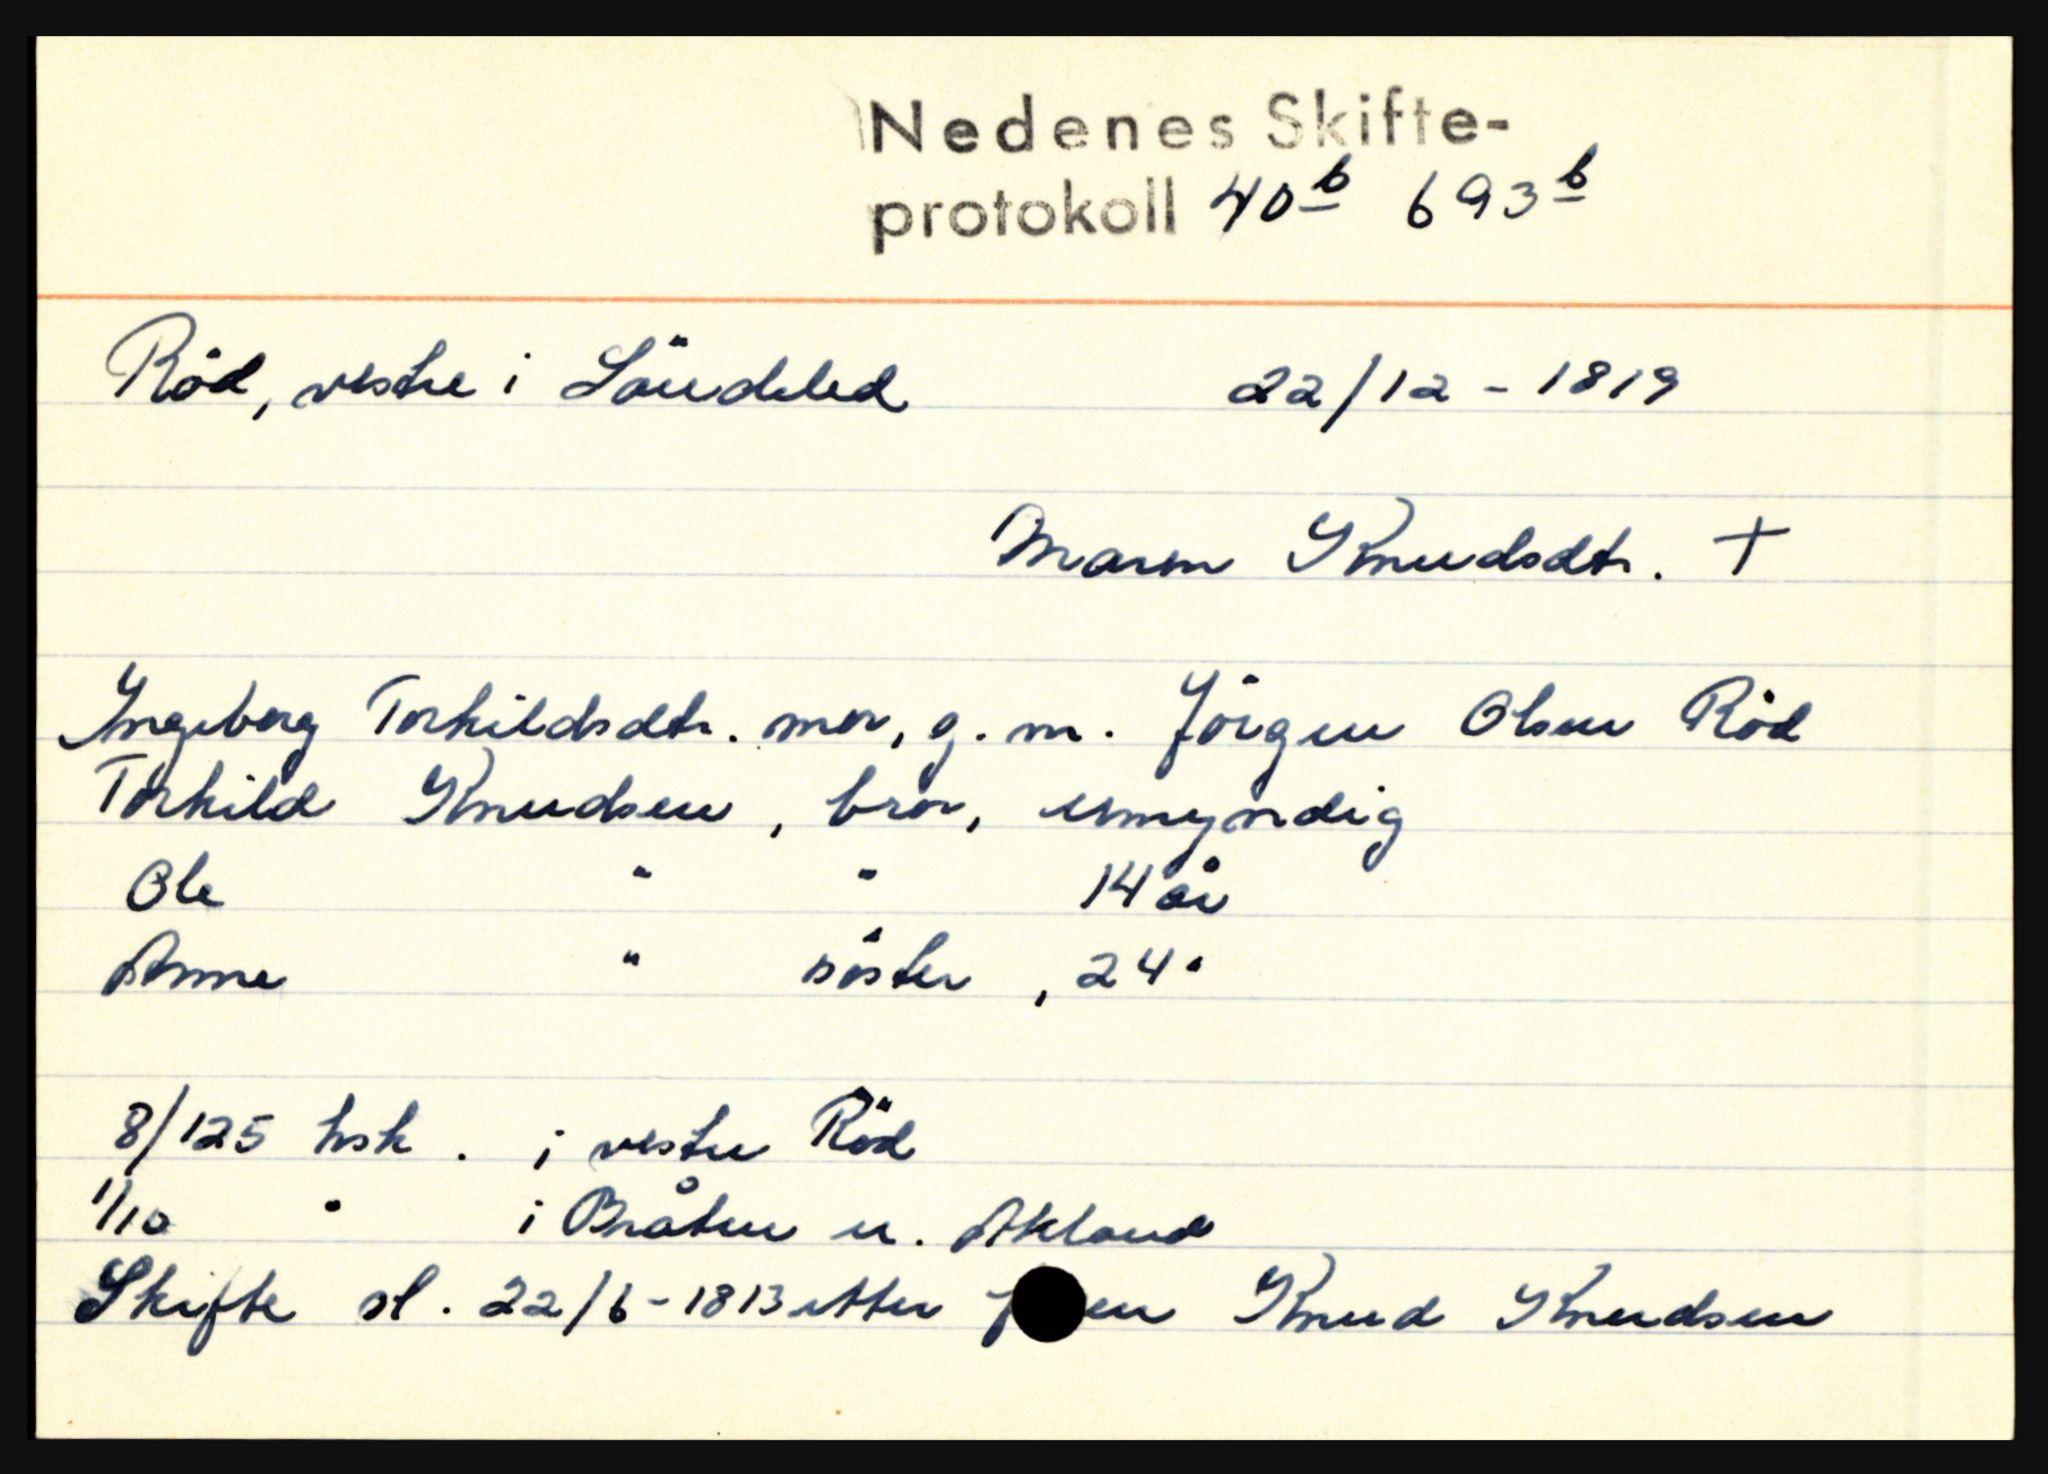 Nedenes Skifte-
protokoll 40b 693b
Röd, vestre i Söndeled 22/12 - 1819
Maren Knudsdtr. +
Ingeborg Torkildsdtr. mor, g. m. Jörgen Olsen Röd
Torkild Knudsen, bror, umyndig
Ole " " 14 år
Anne " söster, 24 "
8/125 hsk. i vestre Röd
1/10 " i Bråten u. Akland
Skifte sl. 22/6 - 1813 etter Knud Knudsen